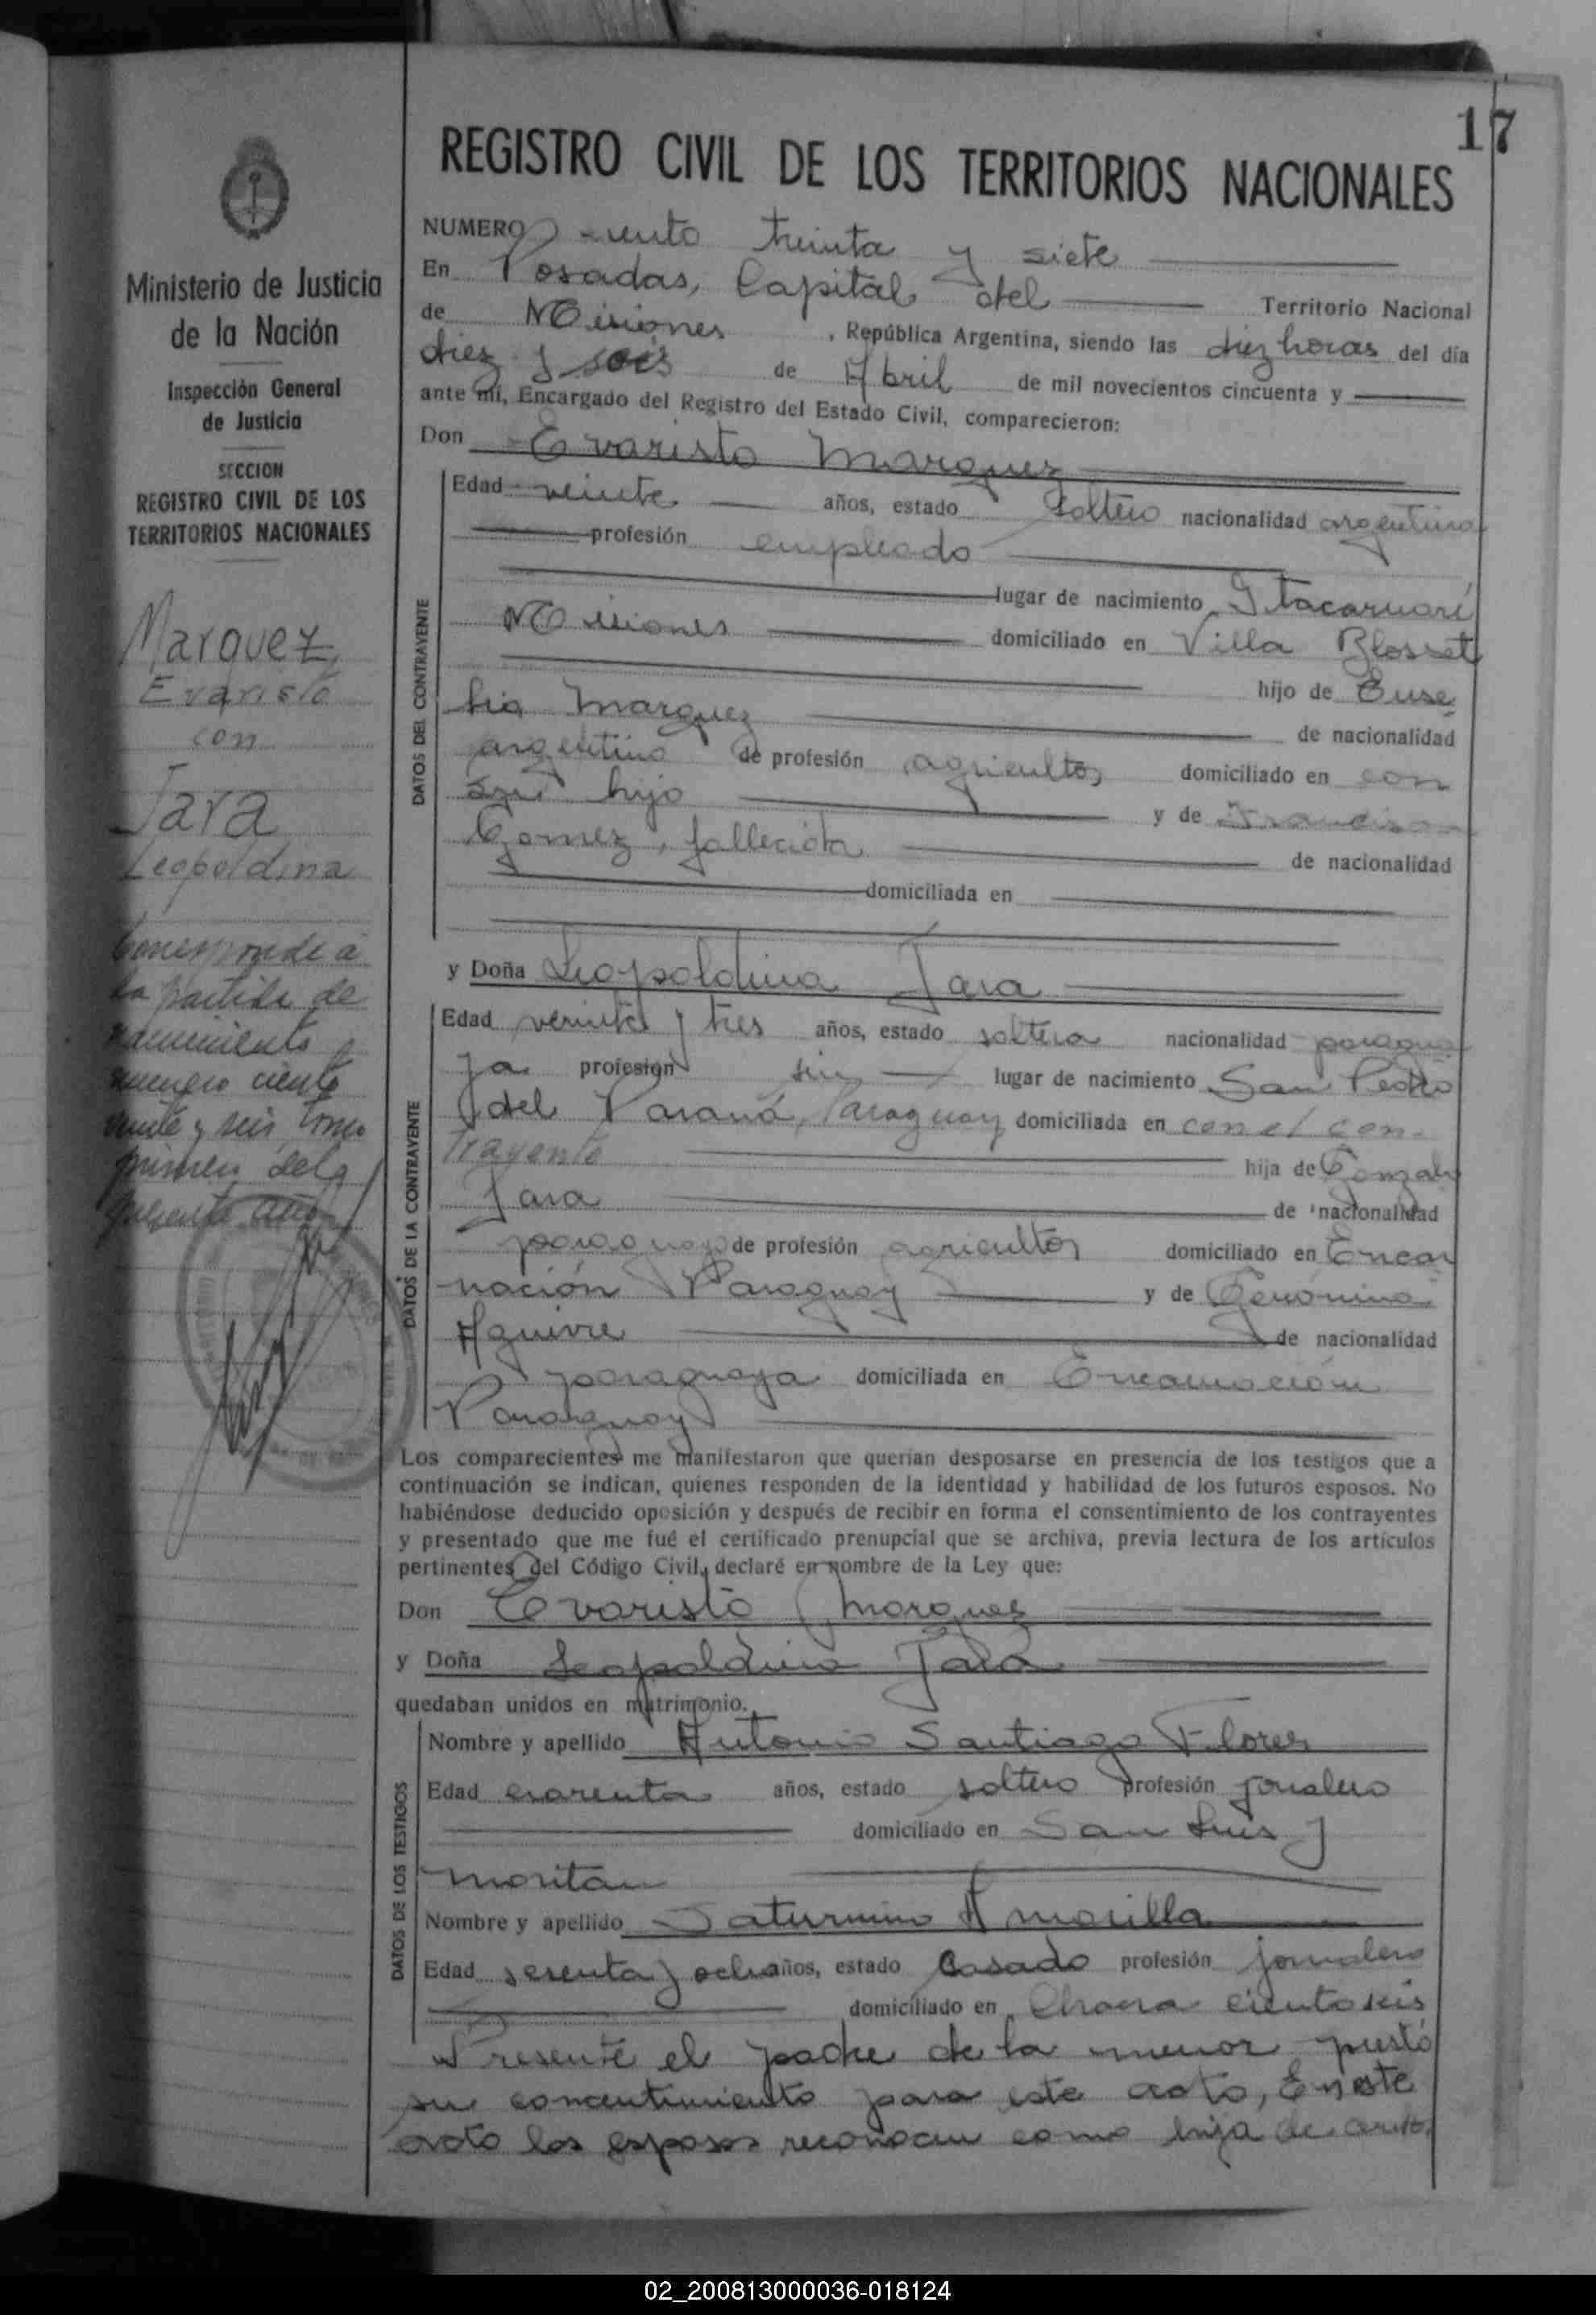 17
REGISTRO CIVIL DE LOS TERRITORIOS NACIONALES
Ministerio de Justicia
de la Nación
Inspección General
de Justicia
SECCION
REGISTRO CIVIL DE LOS
TERRITORIOS NACIONALES
Marquez,
Evaristo
con
Jara
Leopoldina
Corresponde a
la partida de
nacimiento
numero ciento
veinte y seis, tomo
primero del
presente año
NUMERO ciento treinta y siete
En Posadas, Capital del Territorio Nacional
de Misiones, República Argentina, siendo las diez horas del día
diez y seis de Abril de mil novecientos cincuenta y
ante mi, Encargado del Registro del Estado Civil, comparecieron:
Don Evaristo Marquez
DATOS DEL CONTRAYENTE
Edad veinte años, estado soltero nacionalidad argentina
profesión empleado
lugar de nacimiento Itacaruaré
Misiones domiciliado en Villa Blosset
hijo de Euse
bio Marquez de nacionalidad
argentino de profesión agricultor domiciliado en con
su hijo y de Francisca
Gomez, fallecida de nacionalidad
domiciliada en
y Doña Leopoldina Jara
DATOS DE LA CONTRAYENTE
Edad veinte y tres años, estado soltera nacionalidad paragua
ya profesión sin lugar de nacimiento San Pedro
del Paraná, Paraguay domiciliada en con el con-
trayente hija de Gonzalo
Jara de nacionalidad
paraguayo de profesión agricultor domiciliado en Encar
nación Paraguay y de Gerónima
Aguirre de nacionalidad
paraguaya domiciliada en Encarnación
Paraguay
Los comparecientes me manifestaron que querían desposarse en presencia de los testigos que a
continuación se indican, quienes responden de la identidad y habilidad de los futuros esposos. No
habiéndose deducido oposición y después de recibir en forma el consentimiento de los contrayentes
y presentado que me fué el certificado prenupcial que se archiva, previa lectura de los artículos
pertinentes del Código Civil, declaré en nombre de la Ley que:
Don Evaristo Marquez
y Doña Leopoldina Jara
quedaban unidos en matrimonio.
DATOS DE LOS TESTIGOS
Nombre y apellido Antonio Santiago Flores
Edad cuarenta años, estado soltero profesión jornalero
domiciliado en San Luis y
Moritan
Nombre y apellido Saturnino Amarilla
Edad sesenta y ocho años, estado casado profesión jornalero
domiciliado en Chacra ciento seis
Presente el padre de la menor prestó
su concentimiento para este acto, En este
acto los esposos reconocen como hija de ambos
02_200813000036-018124